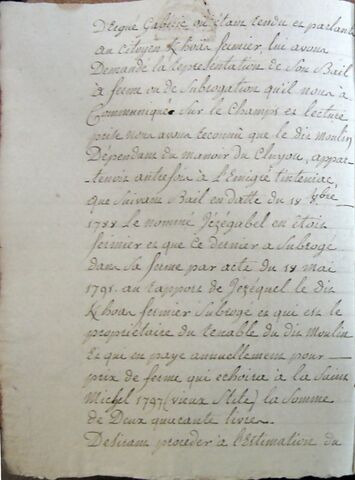 D'Ergué Gabéric où étant rendu et parlant
au citoyen Khoas fermier, lui avons
Demandé la représentation de Son Bail
à ferme ou de Subrogation qu'il nous a
Communiqué Sur le Champs et lecture
prise nous avons reconnu que le dit moulin
Dépendant du manoir du Cluyou, appar-
tenoit autrefois à l'Emigré tinteniac,
que Suivant Bail en datte du 18 8bre
1788 Le nommé Jézégabel en étoit
fermier et que ce dernier a Subrogé
dans Sa ferme par acte du 18 mai
1791. au rapport de Jézéquel le dit
Khoas fermier Subrogé et qui est le
propriétaire du tenable du dit Moulin
et qui en paye annuellement pour
prix de ferme qui echoira à la Saint
Michel 1797 (vieux Stile) la Somme
de Deux quarante livres.
Desirant proceder à l'Estimation du